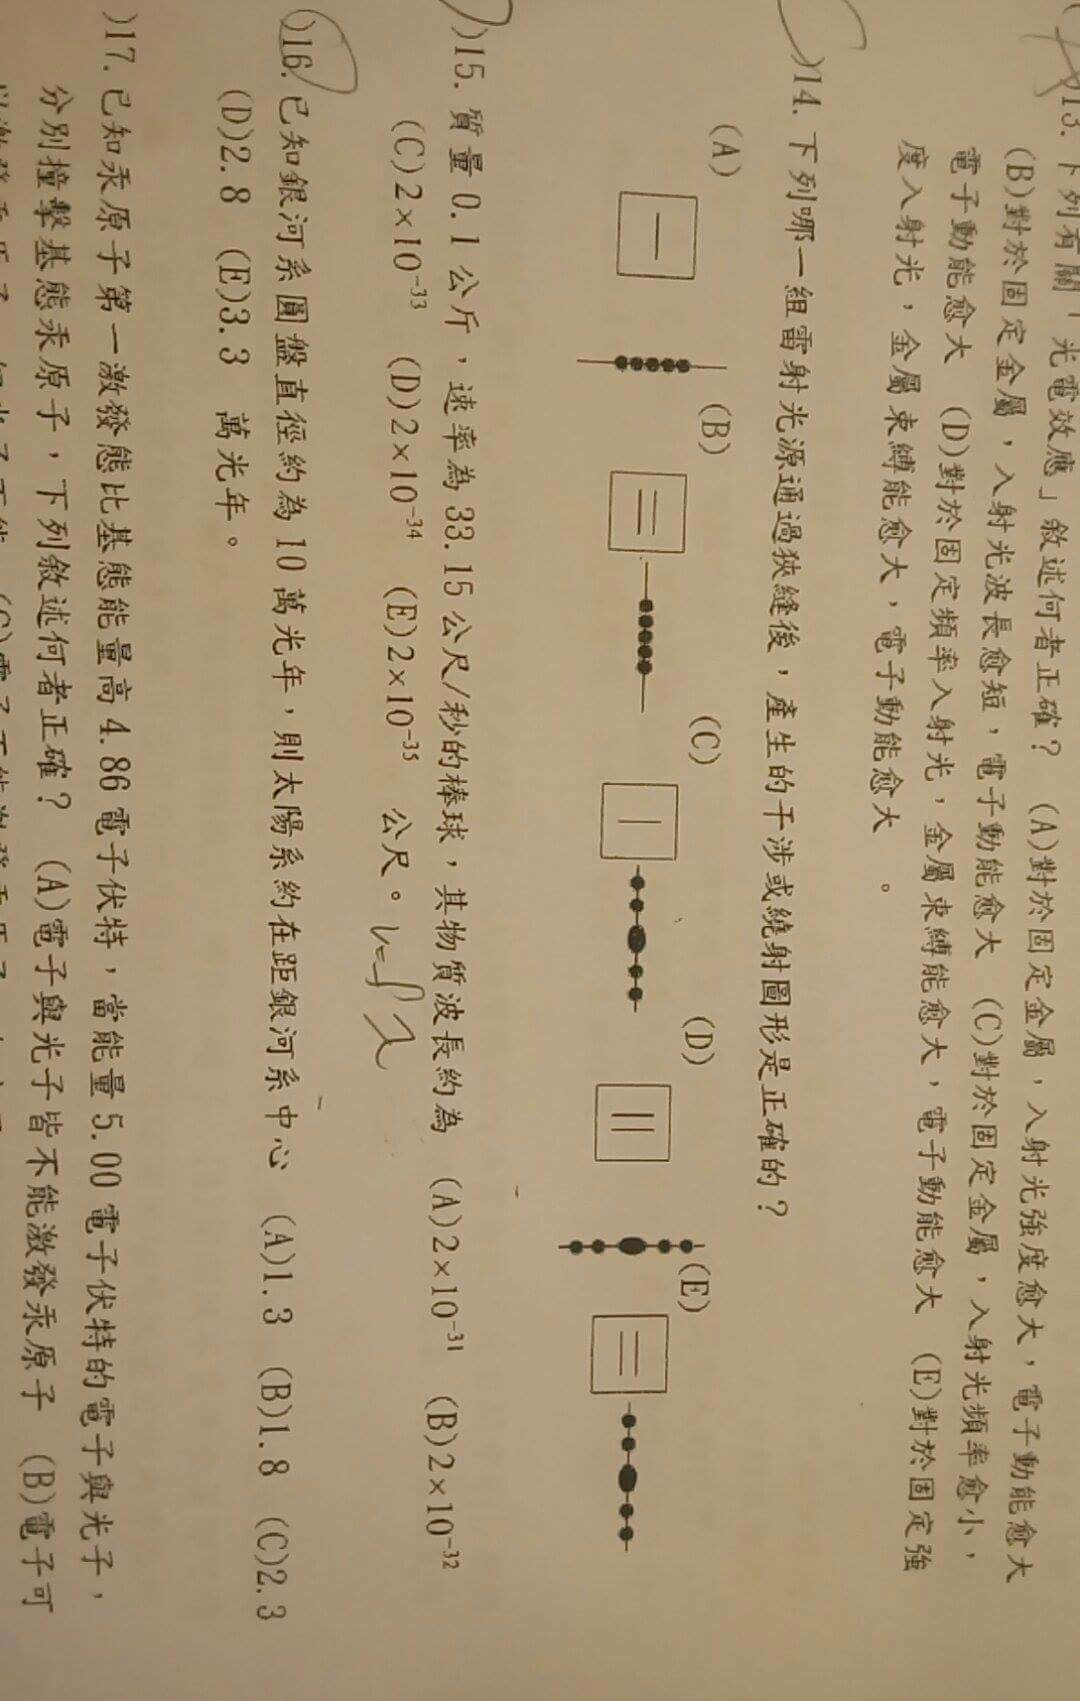 )13. 下列有關「光電效應」敘述何者正確？ (A)對於固定金屬，入射光強度愈大，電子動能愈大
(B)對於固定金屬，入射光波長愈短，電子動能愈大 (C)對於固定金屬，入射光頻率愈小，
電子動能愈大 (D)對於固定頻率入射光，金屬束縛能愈大，電子動能愈大 (E)對於固定強
度入射光，金屬束縛能愈大，電子動能愈大 。
)14. 下列哪一組雷射光源通過狹縫後，產生的干涉或繞射圖形是正確的？
(A) (B) (C) (D) (E)
)15. 質量 0.1 公斤，速率為 33.15 公尺/秒的棒球，其物質波長約為 (A)2×10⁻³¹ (B)2×10⁻³²
(C)2×10⁻³³ (D)2×10⁻³⁴ (E)2×10⁻³⁵ 公尺。 v=fλ
)16. 已知銀河系圓盤直徑約為 10 萬光年，則太陽系約在距銀河系中心 (A)1.3 (B)1.8 (C)2.3
(D)2.8 (E)3.3 萬光年。
)17. 已知汞原子第一激發態比基態能量高 4.86 電子伏特，當能量 5.00 電子伏特的電子與光子，
分別撞擊基態汞原子，下列敘述何者正確？ (A)電子與光子皆不能激發汞原子 (B)電子可